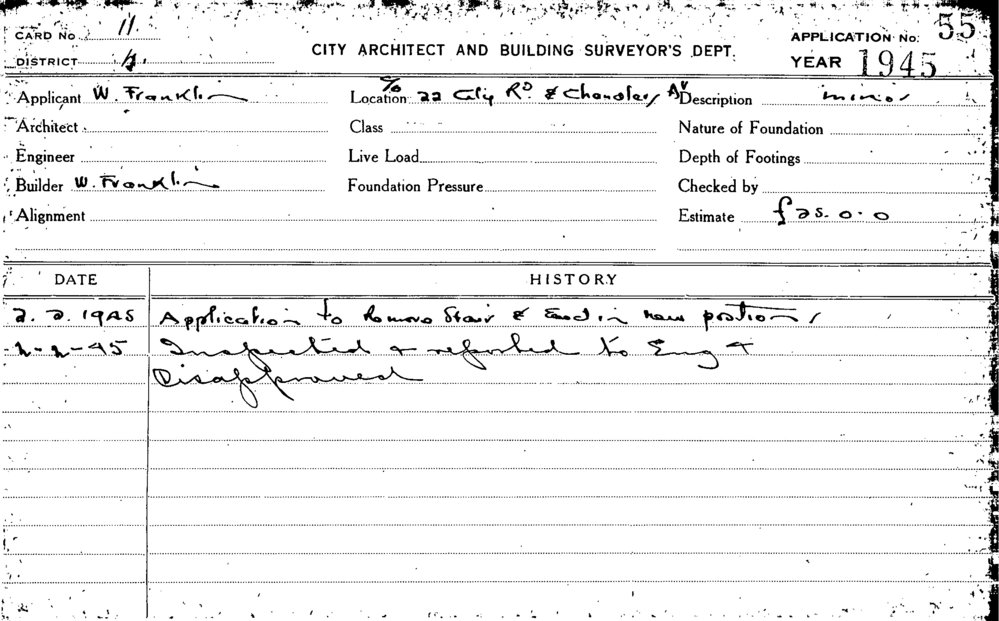 CARD No 11.
DISTRICT
CITY ARCHITECT AND BUILDING SURVEYOR'S DEPT.
APPLICATION No. 55
YEAR 1945
Applicant W. Franklin
Location c/o 22 City Rd & Chandlers Av
Description minor
Architect
Class
Nature of Foundation
Engineer
Live Load
Depth of Footings
Builder W. Franklin
Foundation Pressure
Checked by
Alignment
Estimate £25.0.0
DATE HISTORY
2.2.1945 Application to Remove Stair & in new position
2-2-45 Inspected & reported to Eng &
Disapproved